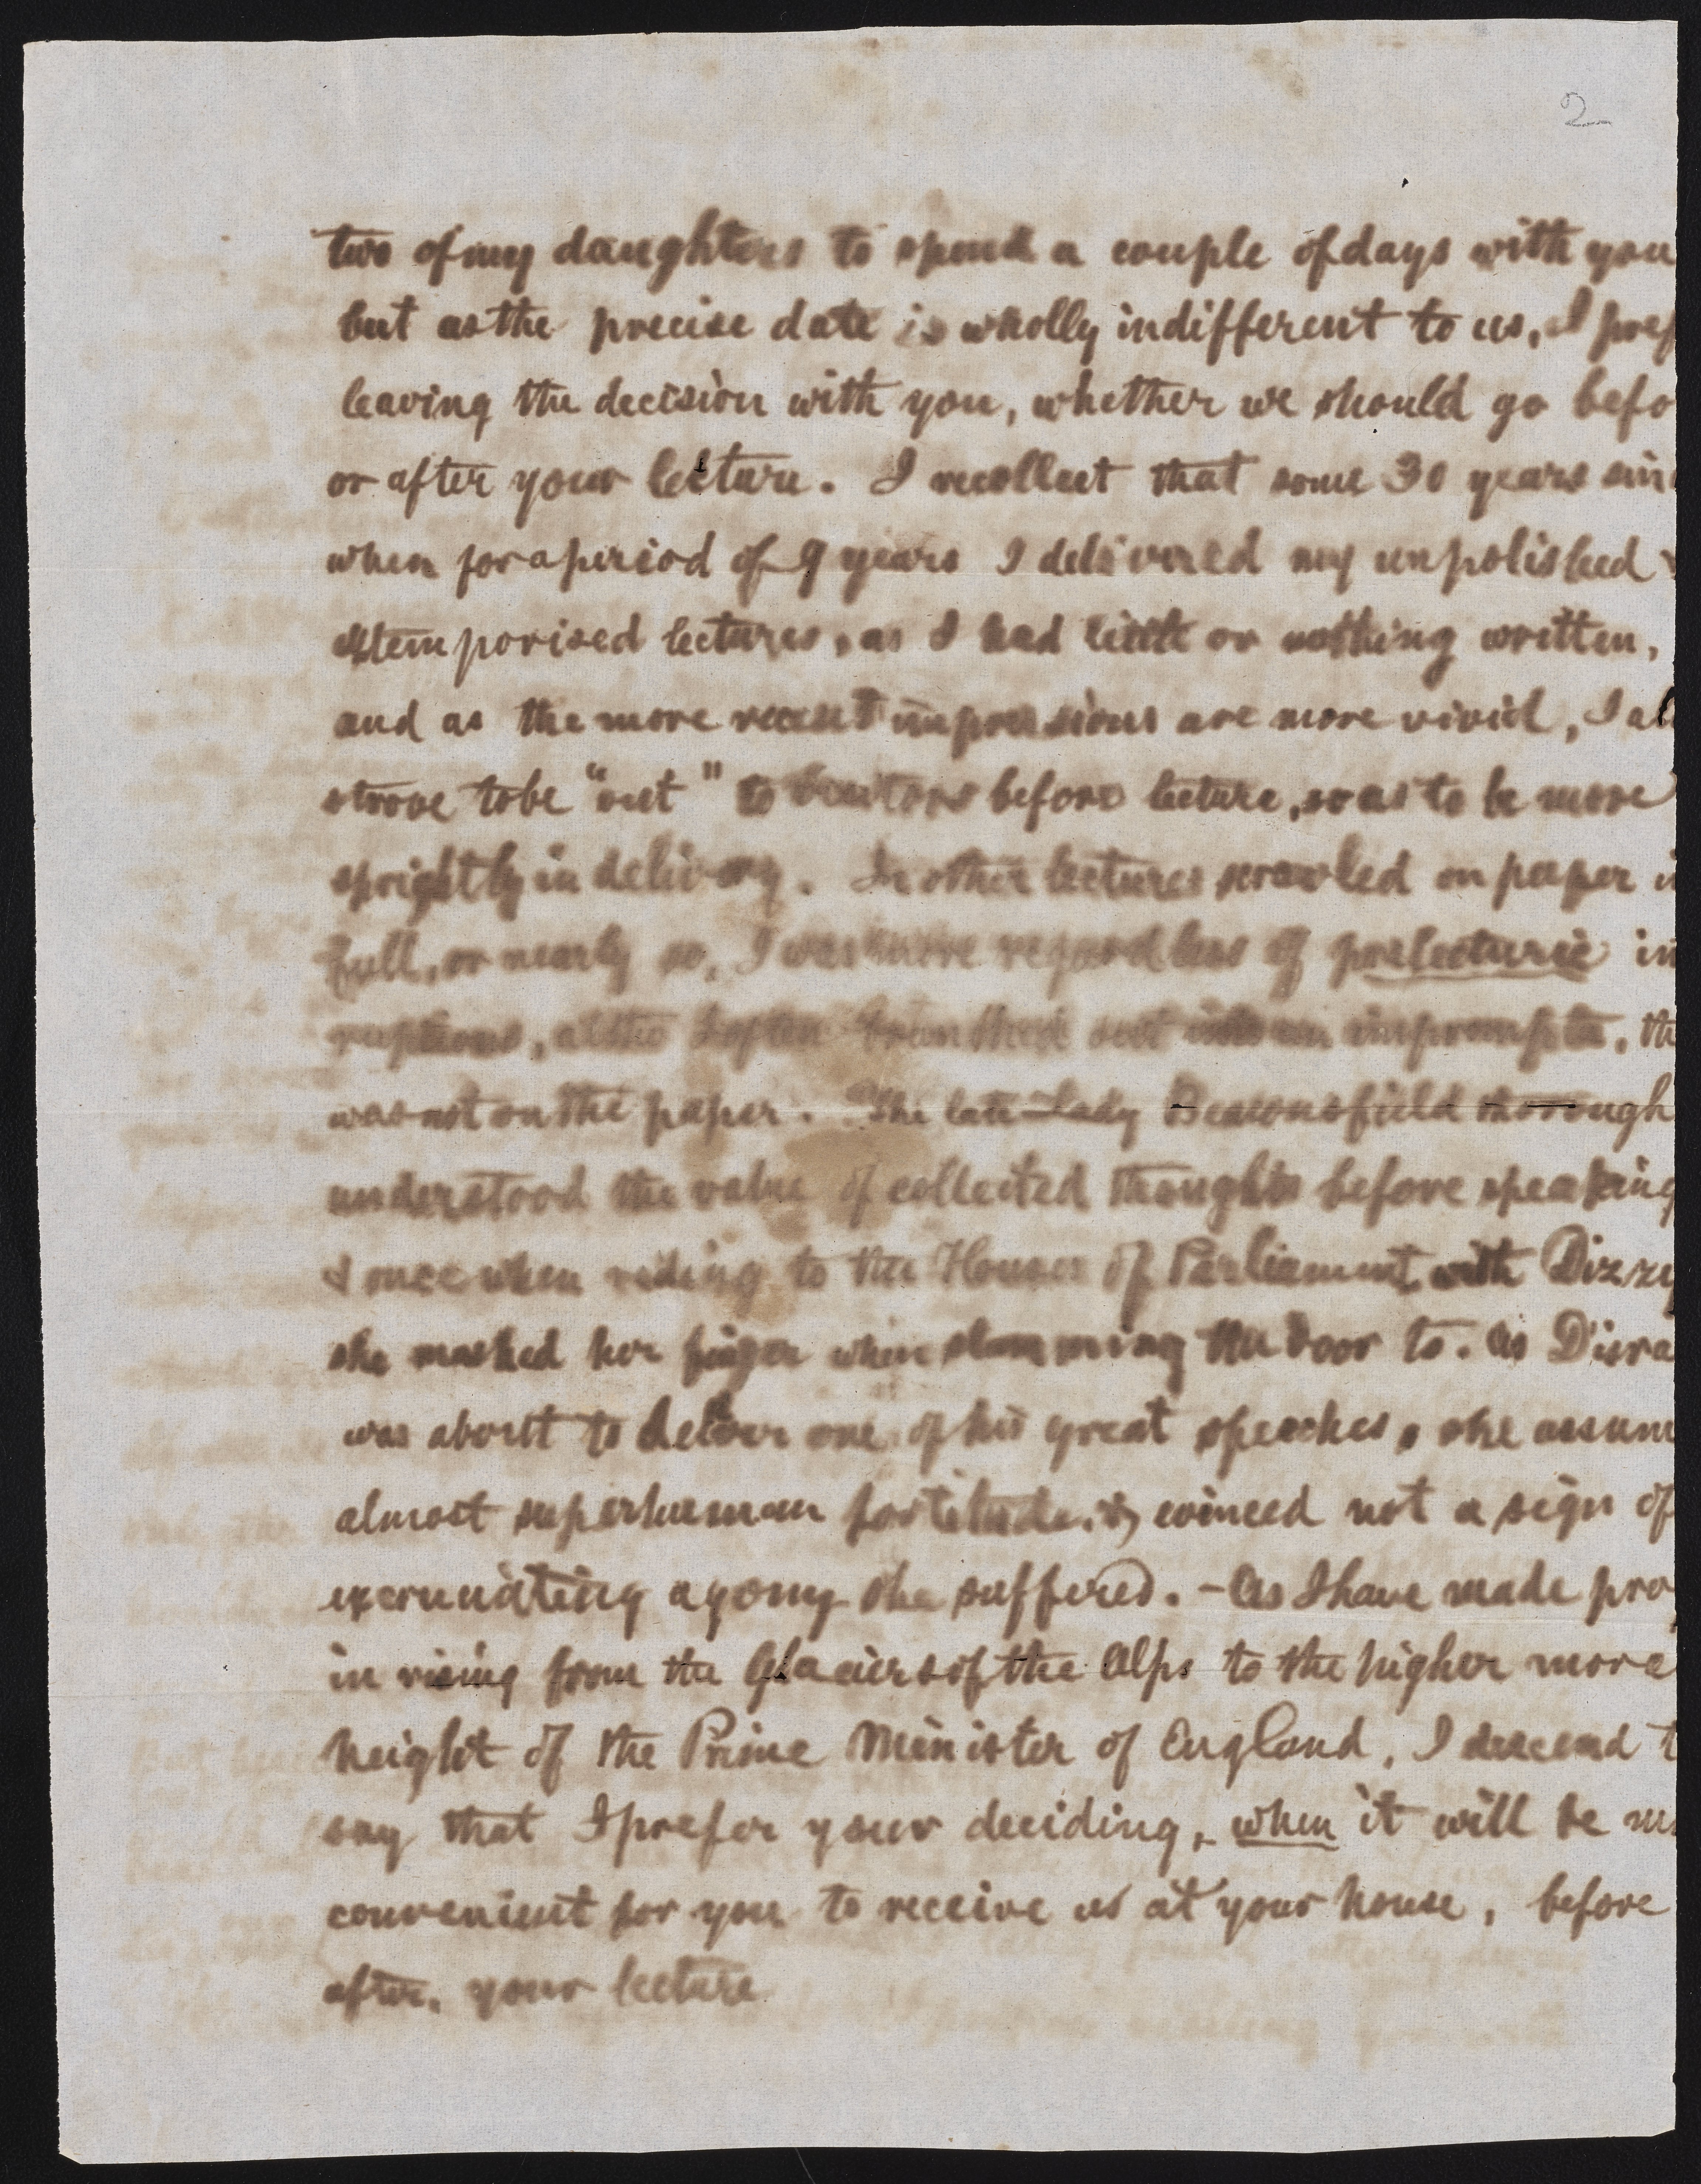 2
two of my daughters to spend a couple of days with you
but as the precise date is wholly indifferent to us, I pref
leaving the decision with you, whether we should go befo
or after your lecture. I recollect that some 30 years sin
when for a period of 9 years I delivered my unpolished
extemporised lectures, as I had little or nothing written,
and as the more recent impressions are more vivid, I al
strove to be "out" to before lecture, so as to be more
sprightly in delivery. In other lectures scrawled on paper i
full, or nearly so, I was more regardless of prelecturic in
ruptions, altho I often into an impromptu, th
was not on the paper. The late Lady Beaconsfield thorough
understood the value of collected thoughts before speaking
& once when riding to the Houses of Parliament with Dizzy
she mashed her finger when slamming the door to. As Disra
was about to deliver one of his great speeches, she assum
almost superhuman fortitude, & evinced not a sign of
excruciating agony she suffered. - As I have made pro
in rising from the Glaciers of the Alps to the higher more
height of the Prime Minister of England, I descend t
say that I prefer your deciding, when it will be m
convenient for you to receive us at your house, before
after, your lecture